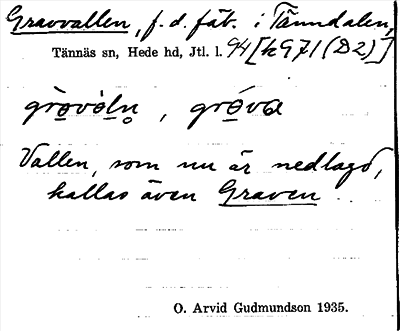 Gravvallen, f. d. fäb. i Tänndalen,
Tännäs sn, Hede hd, Jtl. l. 94 [k971(D2)]
Vallen, som nu är nedlagd,
kallas även Graven.
O. Arvid Gudmundson 1935.